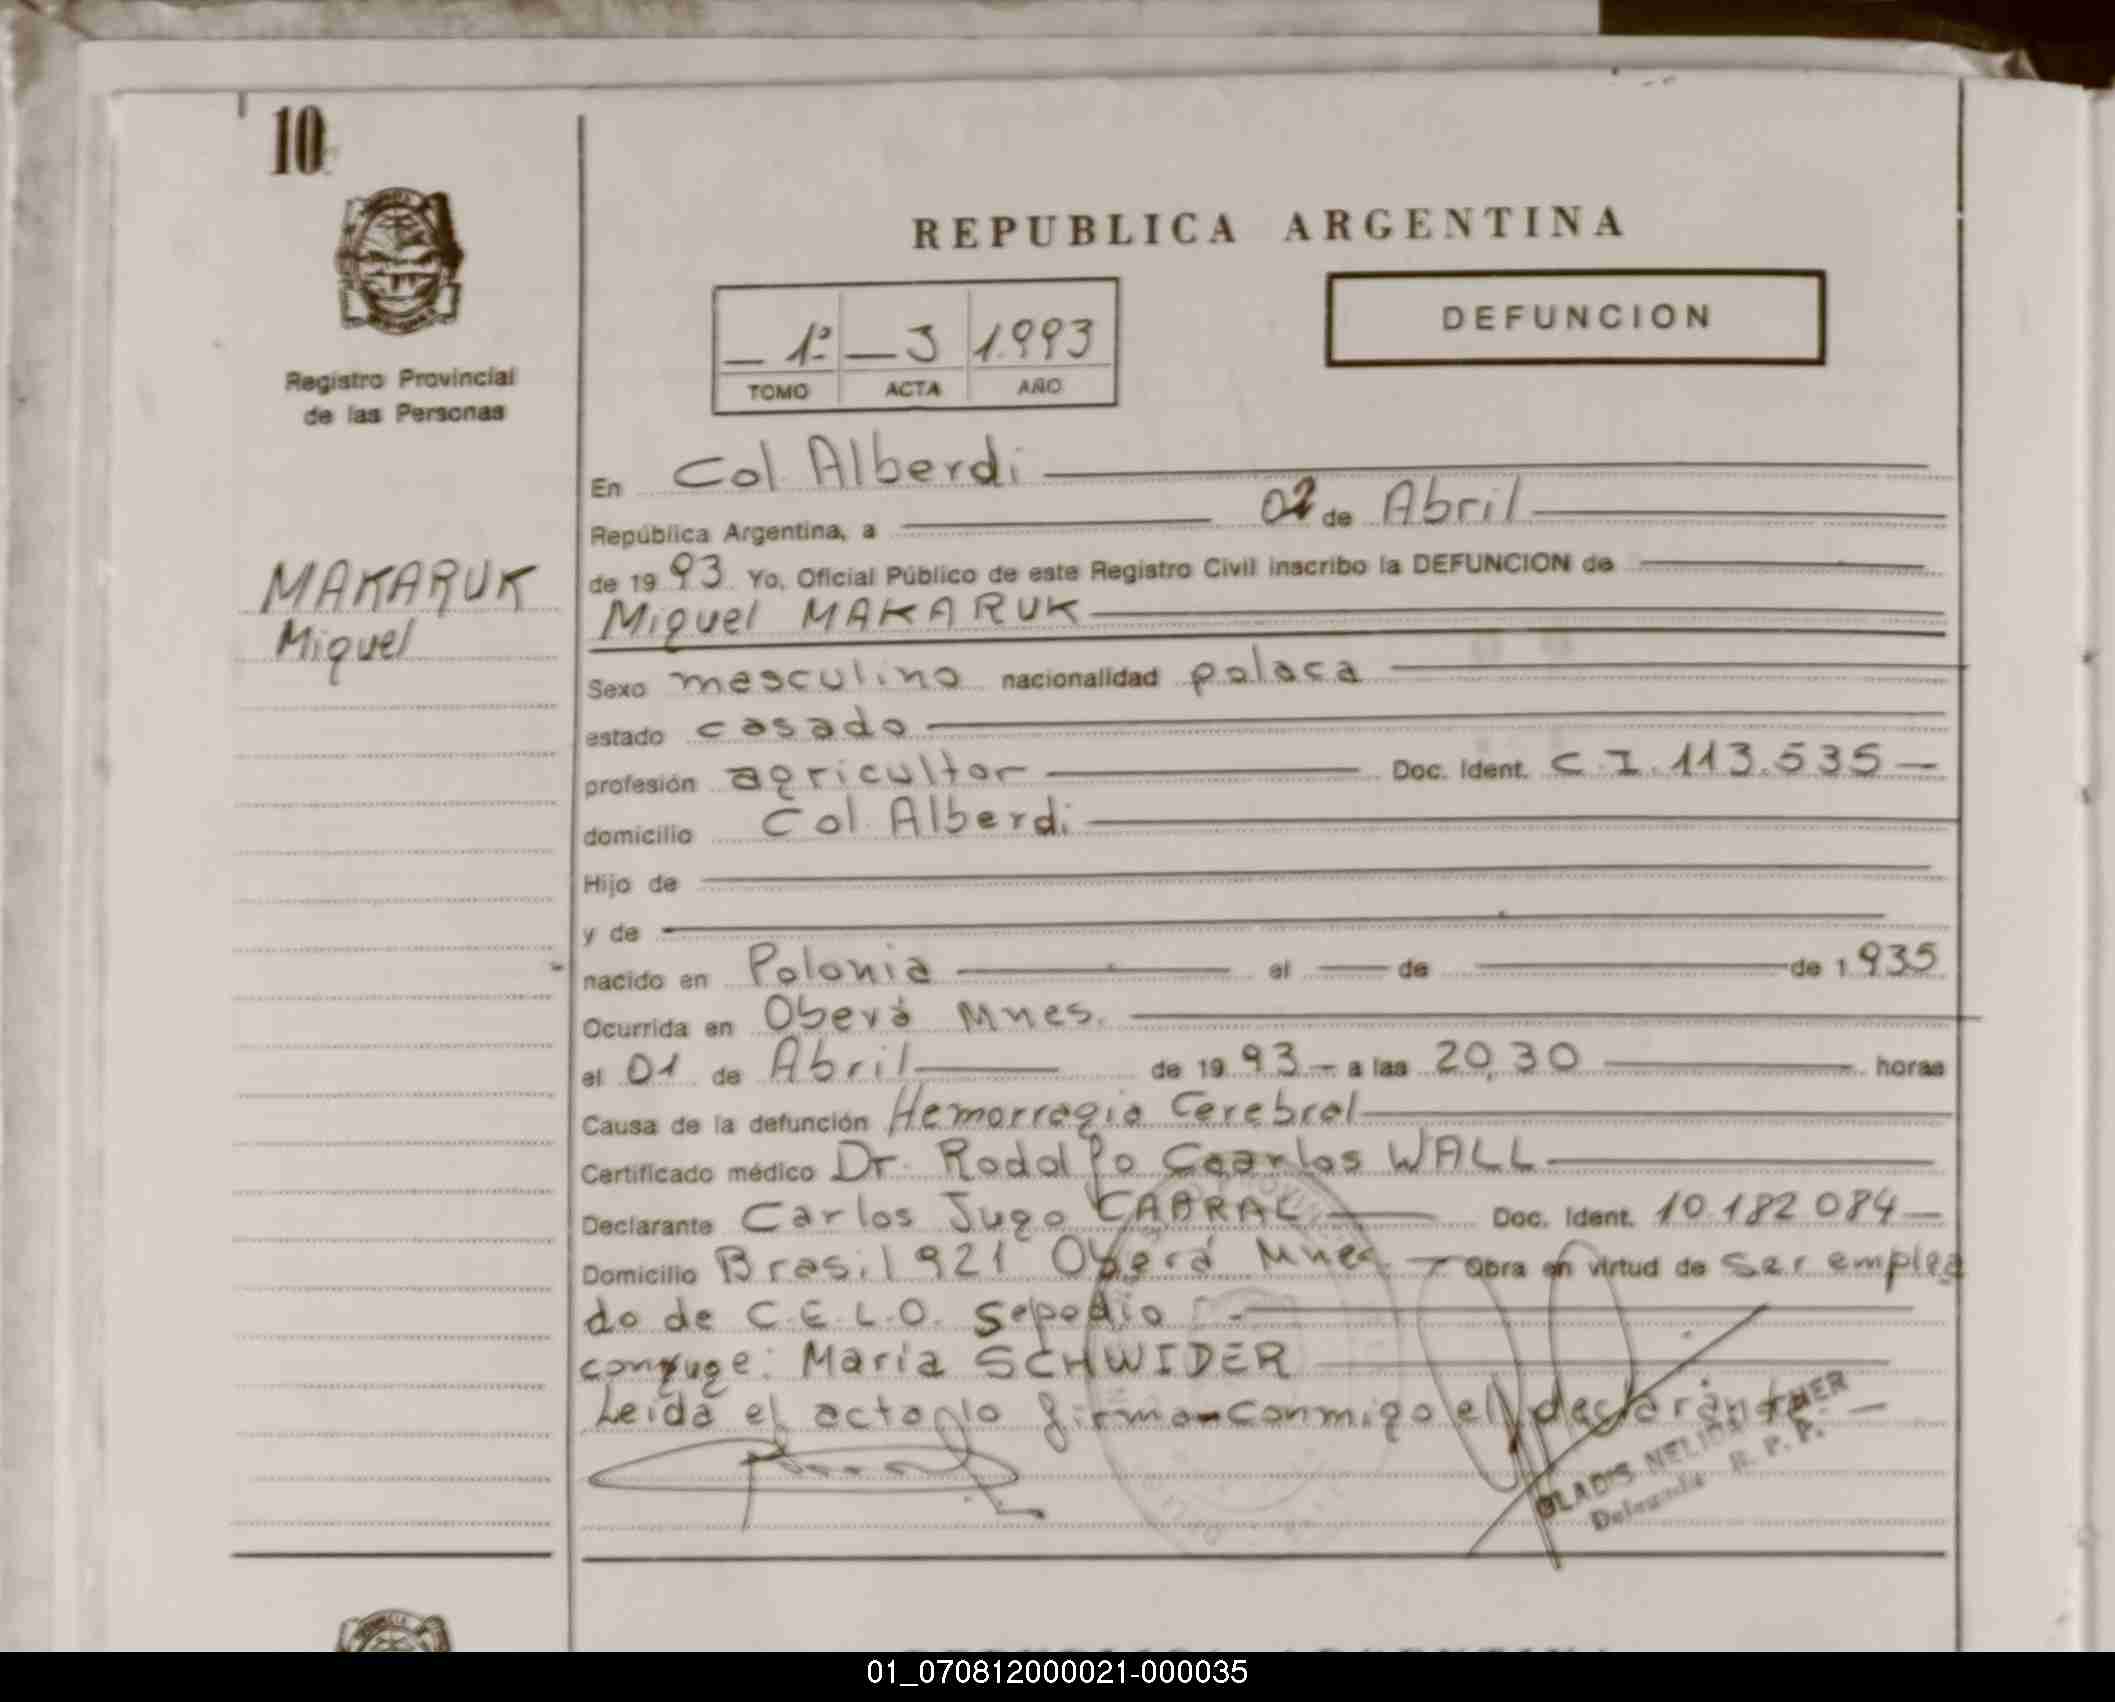 10
REPUBLICA ARGENTINA
DEFUNCION
1º 3 1.993
TOMO ACTA AÑO
Registro Provincial
de las Personas
MAKARUK
Miguel
En Col. Alberdi
República Argentina, a 02 de Abril
de 19 93 Yo, Oficial Público de este Registro Civil inscribo la DEFUNCION de
Miguel MAKARUK
Sexo masculino nacionalidad polaca
estado casado
profesión agricultor Doc. Ident. C.I. 113.535
domicilio Col. Alberdi
Hijo de
y de
nacido en Polonia el de de 1.935
Ocurrida en Oberá Mnes.
el 01 de Abril de 19 93 a las 20,30 horas
Causa de la defunción Hemorragia Cerebral
Certificado médico Dr. Rodolfo Caarlos WALL
Declarante Carlos Jugo CABRAL Doc. Ident. 10.182.084
Domicilio Brasil 921 Oberá Mnes. Obra en virtud de ser emplea
do de C.E.L.O. Sepedio
conyuge: Maria SCHWIDER
Leida el acta lo firma conmigo el declarante.
GLADIS NELIDA
Delegada R. P. P.
01_070812000021-000035